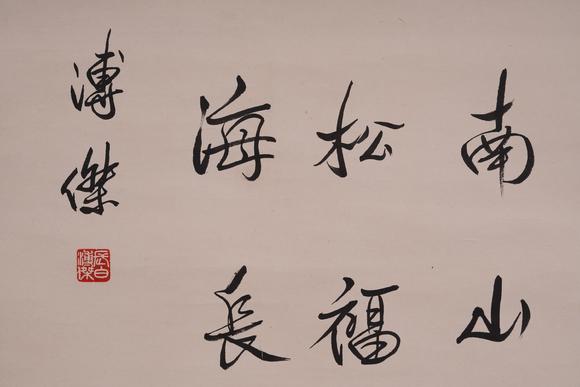 南山
松福
海長
溥傑
長白溥傑